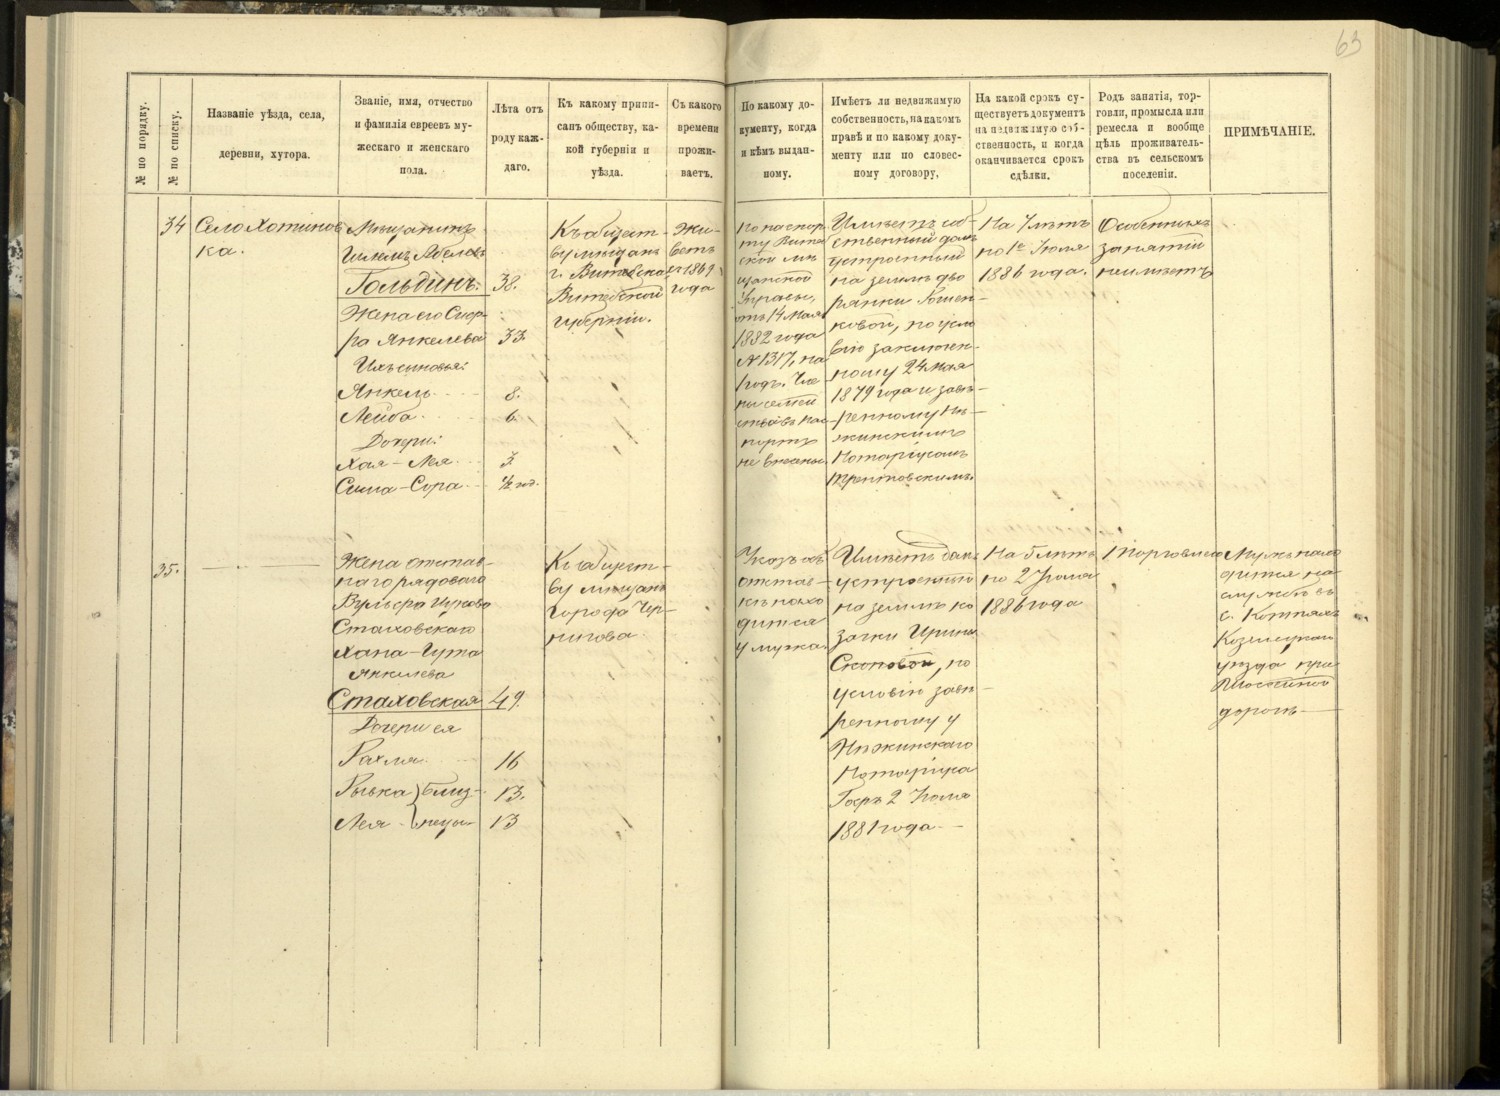 63
№ по порядку.
№ по списку.
Названіе уѣзда, села,
деревни, хутора.
Званіе, имя, отчество
и фамилія евреевъ му-
жескаго и женскаго
пола.
Лѣта отъ
роду каж-
даго.
Къ какому припи-
санъ обществу, ка-
кой губерніи и
уѣзда.
Съ какого
времени
прожи-
ваетъ.
По какому до-
кументу, когда
и кѣмъ выдан-
ному.
Имѣетъ ли недвижимую
собственность, на какомъ
правѣ и по какому доку-
менту или по словес-
ному договору,
На какой срокъ су-
ществуетъ документъ
на недвижимую соб-
ственность, и когда
оканчивается срокъ
сдѣлки.
Родъ занятія, тор-
говли, промысла или
ремесла и вообще
цѣль проживатель-
ства въ сельскомъ
поселеніи.
ПРИМѢЧАНІЕ.
34
Село Хотинов
ка.
Мѣщанинъ
Гольдинъ.
Жена его Сиф-
ра Янкелева
Ихъ сыновья:
Янкель
Лейба
Дочери:
Хая-Лея
Сима-Сора
38.
33.
8.
6.
3.
½ год.
Къ общест-
ву мѣщанъ
г. Витебска
Витебской
губерніи.
Жи-
ветъ
съ 1869
года
По паспор
ту Вите
ской мѣ
щанской
Управы,
отъ 14 мая
1882 года
№ 1317, на
1 годъ. Чле
ны семей
ства въ пас
портъ
не вписаны.
Имѣетъ соб-
ственный домъ
устроенный
на землѣ дво
рянки Гошен-
ковой, по усло
вію заключен-
ному 24 мая
1879 года и завѣ-
ренному Нѣ-
жинскимъ
Нотаріусомъ
Трентовскимъ.
На 7 лѣтъ
по 1е Іюля
1886 года.
Особенныхъ
занятій
неимѣетъ
35.
Жена отстав-
наго рядоваго
Вульфа Ицкова
Стаховскаго
Хана-Гута
Янкелева
Стаховская
Дочери ея
Рахля
Рыська } близ-
Лея } нецы
49.
16
13.
13
Къ общест-
ву мѣщанъ
города Чер-
нигова.
Указъ объ
отстав-
кѣ нахо
дится
у мужа.
Имѣетъ домъ
устроенный
на землѣ ко
зачки Ирины
Скоповой, по
условію завѣ-
ренному у
Нѣжинскаго
Нотаріуса
Горъ 2 Іюля
1881 года
На 5 лѣтъ
по 2 Іюля
1886 года
Торговлею
Мужъ нахо
дится на
службѣ въ
с. Коптяхъ
Козелецкаго
уѣзда при
шоссейной
дорогѣ